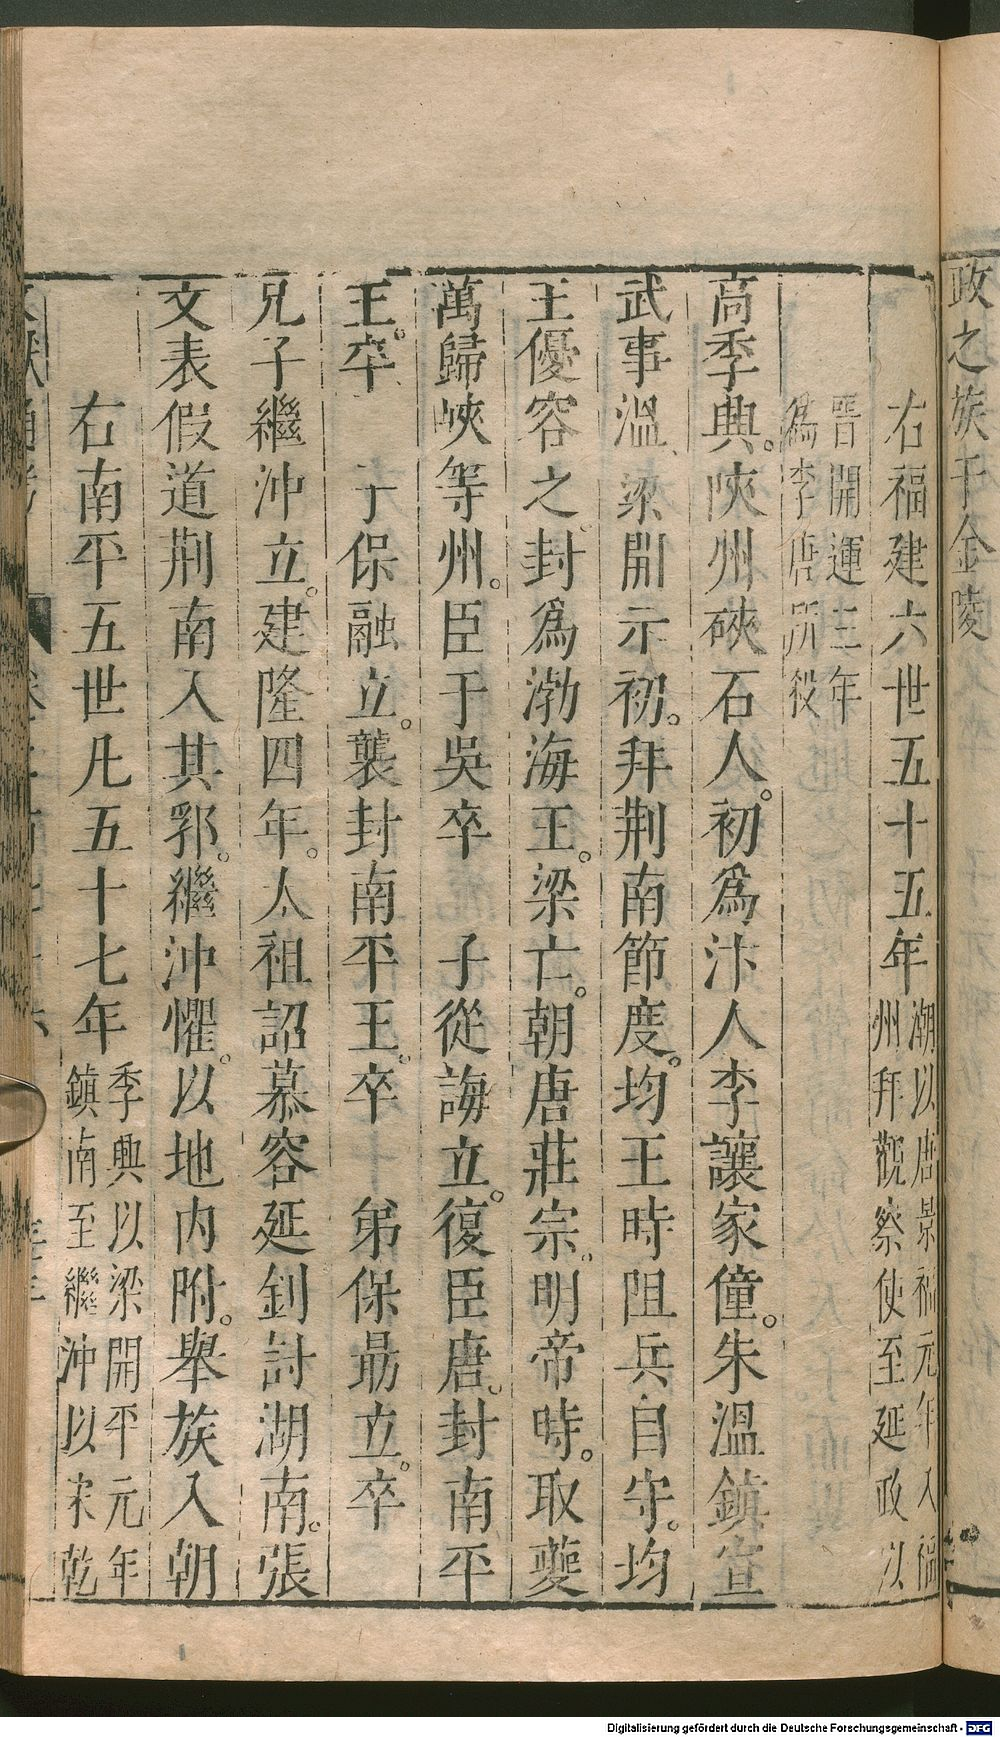 政之族于金陵
右福建六世五十五年潮以唐景福元年入福
州拜觀察使至延政以
晋開運三年
爲李唐所殺
高季興。陝州硤石人。初爲汴人李讓家僮。朱溫鎮宣
武事溫、梁開示初。拜荆南節度。均王時阻兵自守。均
王優容之封爲渤海王。梁亡。朝唐莊宗。明帝時。取夔
萬歸峽等州。臣于吳卒 子從誨立。復臣唐。封南平
王。卒 子保融立。襲封南平王。卒 弟保勗立。卒
兄子繼沖立。建隆四年。太祖詔慕容延釗討湖南。張
文表假道荆南入其郛。繼沖懼。以地内附。舉族入朝
右南平五世凡五十七年季興以梁開平元年
鎮南至繼沖以宋乾
Digitalisierung gefördert durch die Deutsche Forschungsgemeinschaft - DFG